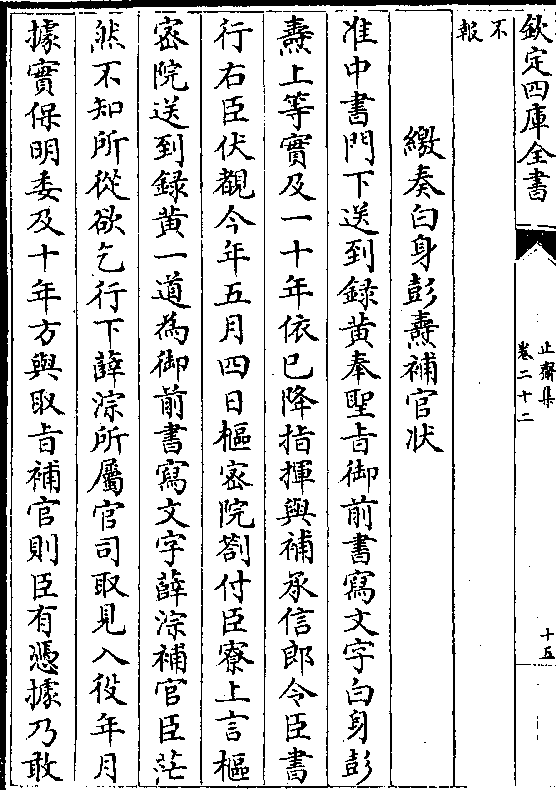 欽定四庫全書
止齋集
卷二十二
十五
不
報
繳奏白身彭燾補官狀
准中書門下送到録黄奉聖旨御前書寫文字白身彭
燾上等實及一十年依已降指揮與補承信郎令臣書
行右臣伏覩今年五月四日樞密院劄付臣寮上言樞
密院送到録黄一道為御前書寫文字薛淙補官臣茫
然不知所從欲乞行下薛淙所屬官司取見入役年月
據實保明委及十年方與取旨補官則臣有憑據乃敢